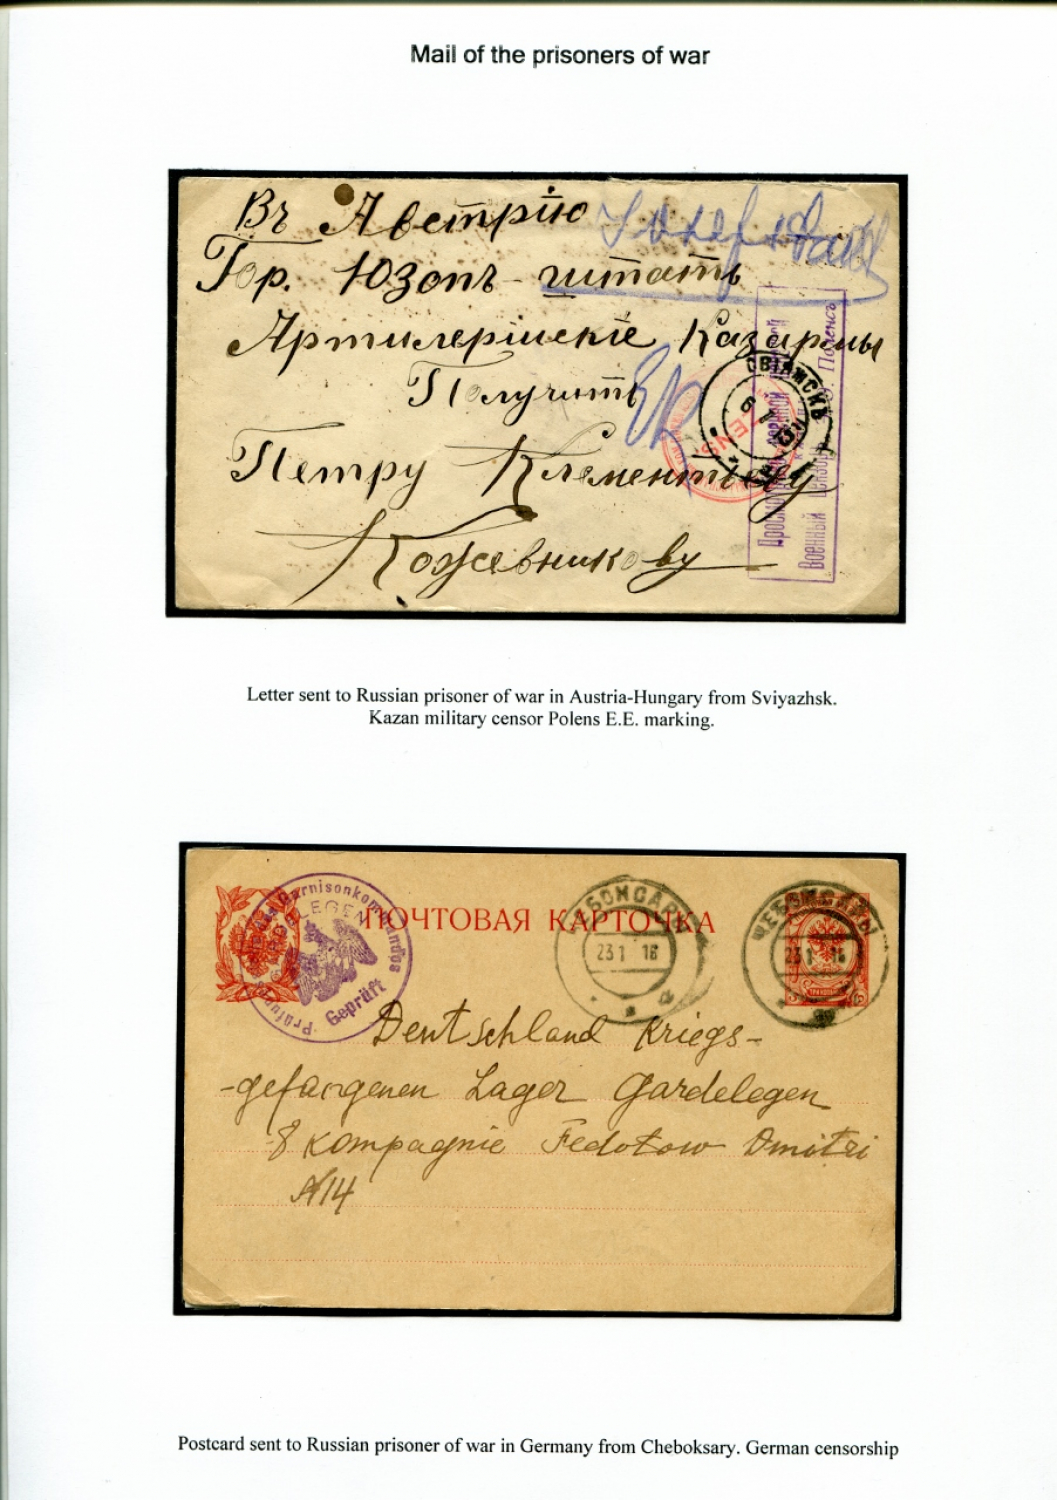 Mail of the prisoners of war
Въ Австрiю
Josefstadt
Гор. Юзопъ-читатъ
Артилерiйскiе Казармы
Получить
Петру Клементьеву
Кожевникову
СВIЯЖСКЪ
ZENS
Военный Цензоръ Поленсъ
Letter sent to Russian prisoner of war in Austria-Hungary from Sviyazhsk.
Kazan military censor Polens E.E. marking.
ПОЧТОВАЯ КАРТОЧКА
Garnisonkommandos
Geprüft
ЧЕБОКСАРЫ
23 1 16
ЧЕБОКСАРЫ
23 1 16
Deutschland Kriegs-
-gefangenen Lager Gardelegen
8 Kompagnie Fedotow Dmitri
N14
Postcard sent to Russian prisoner of war in Germany from Cheboksary. German censorship